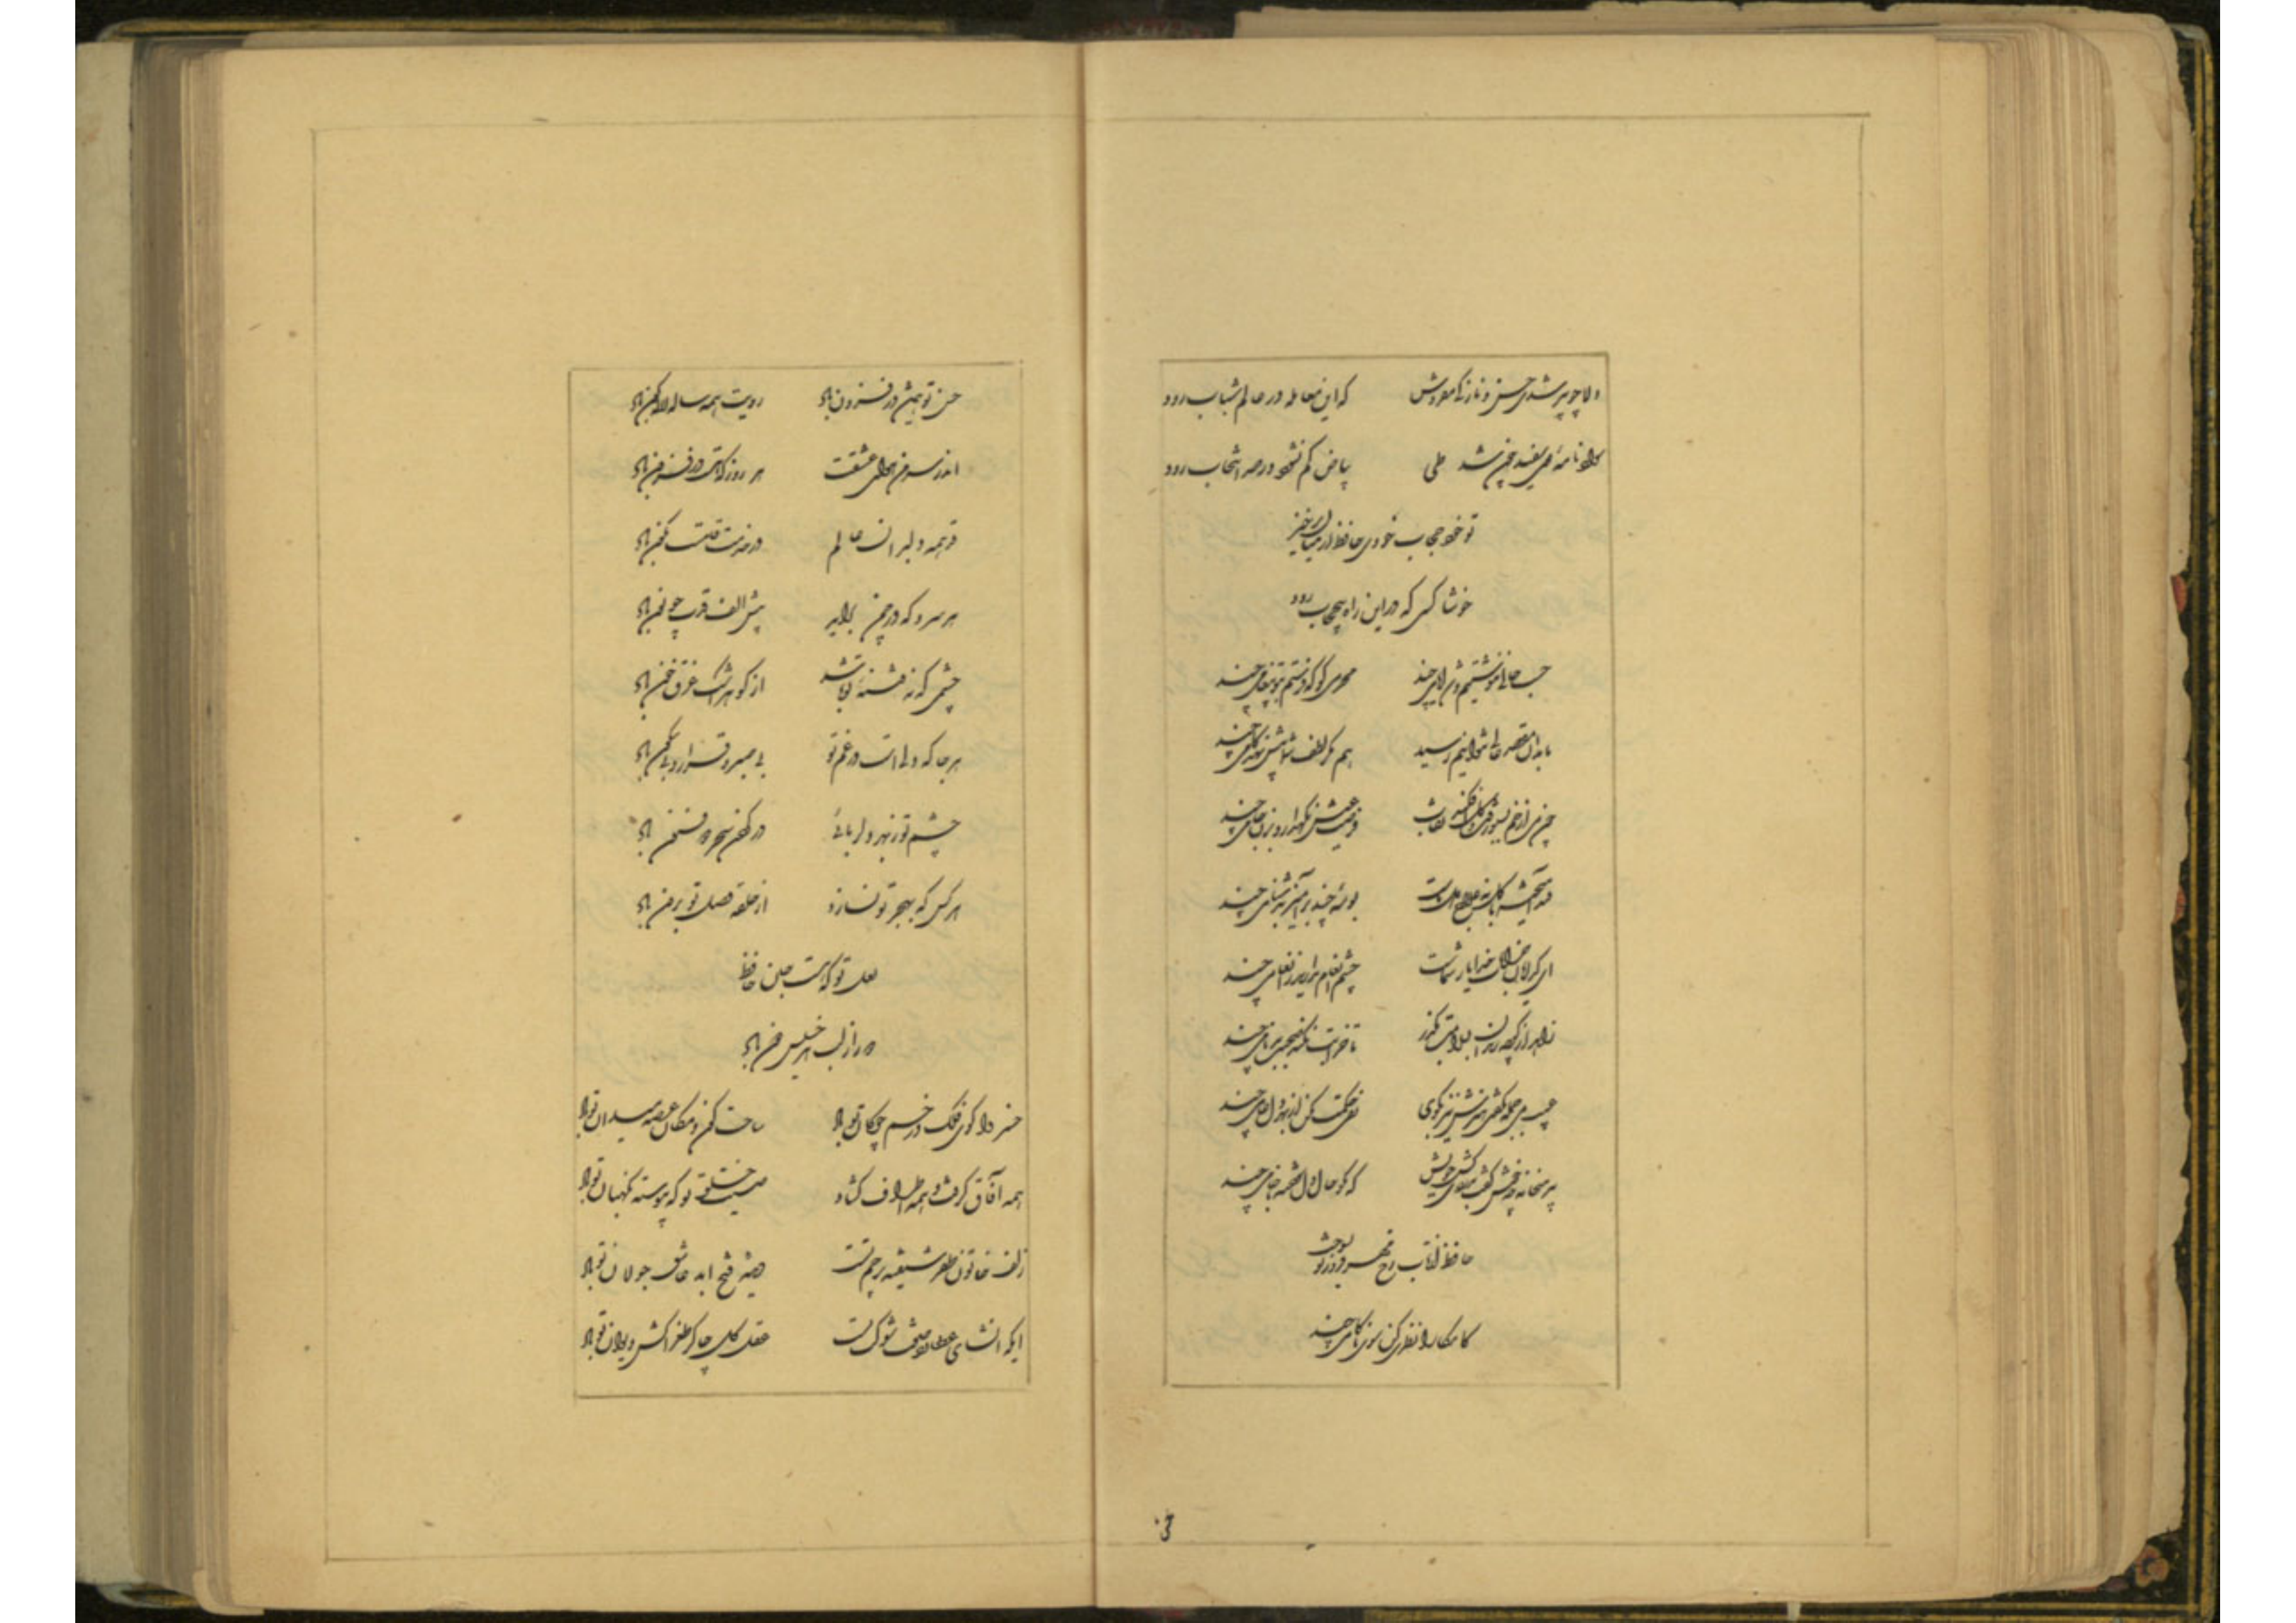 دلا چو پیر شدی حسن و نازکی مفروش که این معامله در عالم شباب رود
سواد نامه موی سفید چون شد طی بیاض کم نشود ور صد انتخاب رود
تو خود حجاب خودی حافظ از میان برخیز
خوشا کسی که در این راه بی‌حجاب رود
حسب حالی ننوشتیم و شد ایامی چند محرمی کو که فرستم بتو پیغامی چند
ما بدان مقصد عالی نتوانیم رسید هم مگر لطف شما پیش نهد گامی چند
چون می از خم بسبو رفت و گل افکند نقاب فرصت عیش نگهدار و بزن جامی چند
قند آمیخته با گل نه علاج دل ماست بوسه چند برآمیز بدشنامی چند
ای گدایان خرابات خدا یار شماست چشم انعام مدارید ز انعامی چند
زاهد از کوچه رندان بسلامت بگذر تا خرابت نکند صحبت بدنامی چند
عیب می جمله بگفتی هنرش نیز بگوی نفی حکمت مکن از بهر دل عامی چند
پیر میخانه چه خوش گفت بدردی کش خویش که مگو حال دل سوخته با خامی چند
حافظ از تاب رخ مهر فروز تو بسوخت
کامکارا نظری کن سوی ناکامی چند
خس
حسن تو همیشه در فزون باد رویت همه ساله لاله گون باد
اندر سر من هوای عشقت هر روز که هست در فزون باد
قد همه دلبران عالم در خدمت قامتت نگون باد
هر سرو که در چمن برآید پیش الف قدت چو نون باد
چشمی که نه فتنه تو باشد از گوهر اشک غرق خون باد
هر جا که دلیست در غم تو بی صبر و قرار و بی سکون باد
چشم تو ز بهر دلربائی در کردن سحر ذوفنون باد
هر کس که بهجر تو نسازد از حلقه وصل تو برون باد
لعل تو که هست جان حافظ
دور از لب هر خسیس دون باد
خسروا گوی فلک در خم چوگان تو باد ساحت کون و مکان عرصه میدان تو باد
همه آفاق گرفت و همه اطراف گشاد صیت خلق تو که پیوسته نگهبان تو باد
زلف خاتون ظفر شیفته پرچم تست دیده فتح ابد عاشق جولان تو باد
ایکه انشای عطارد صفت شوکت تست عقل کل چاکر طغراکش دیوان تو باد